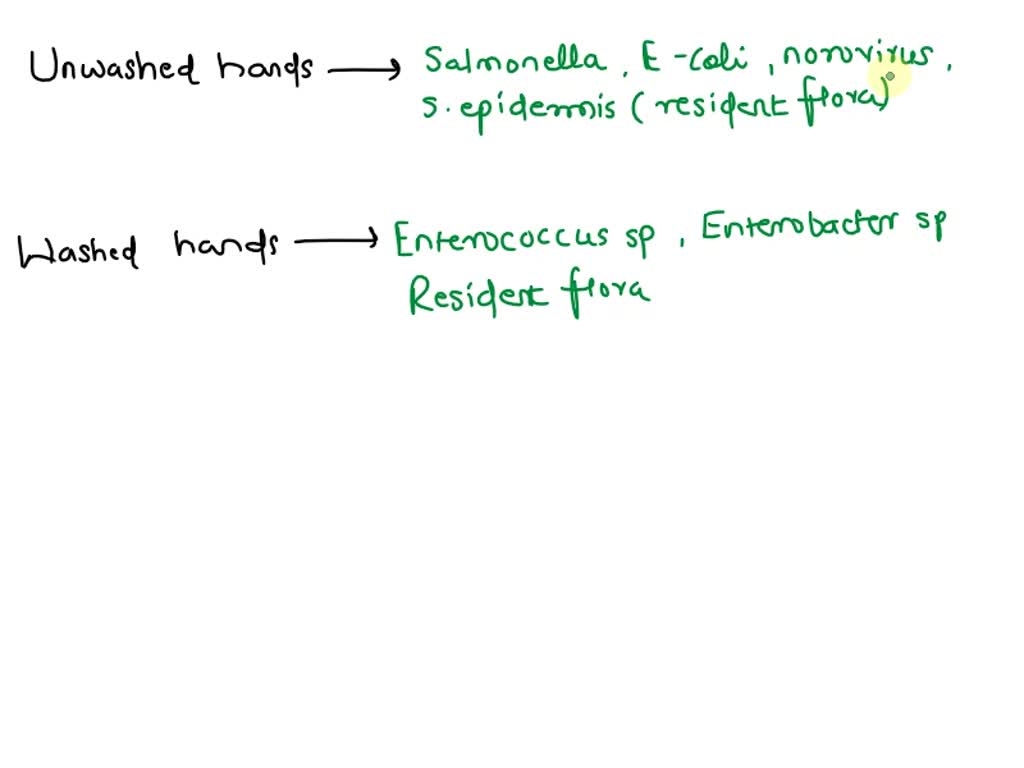 Unwashed hands → Salmonella, E-coli, norovirus,
S. epidermis (resident flora)
Washed hands → Enterococcus sp, Enterobacter sp
Resident flora